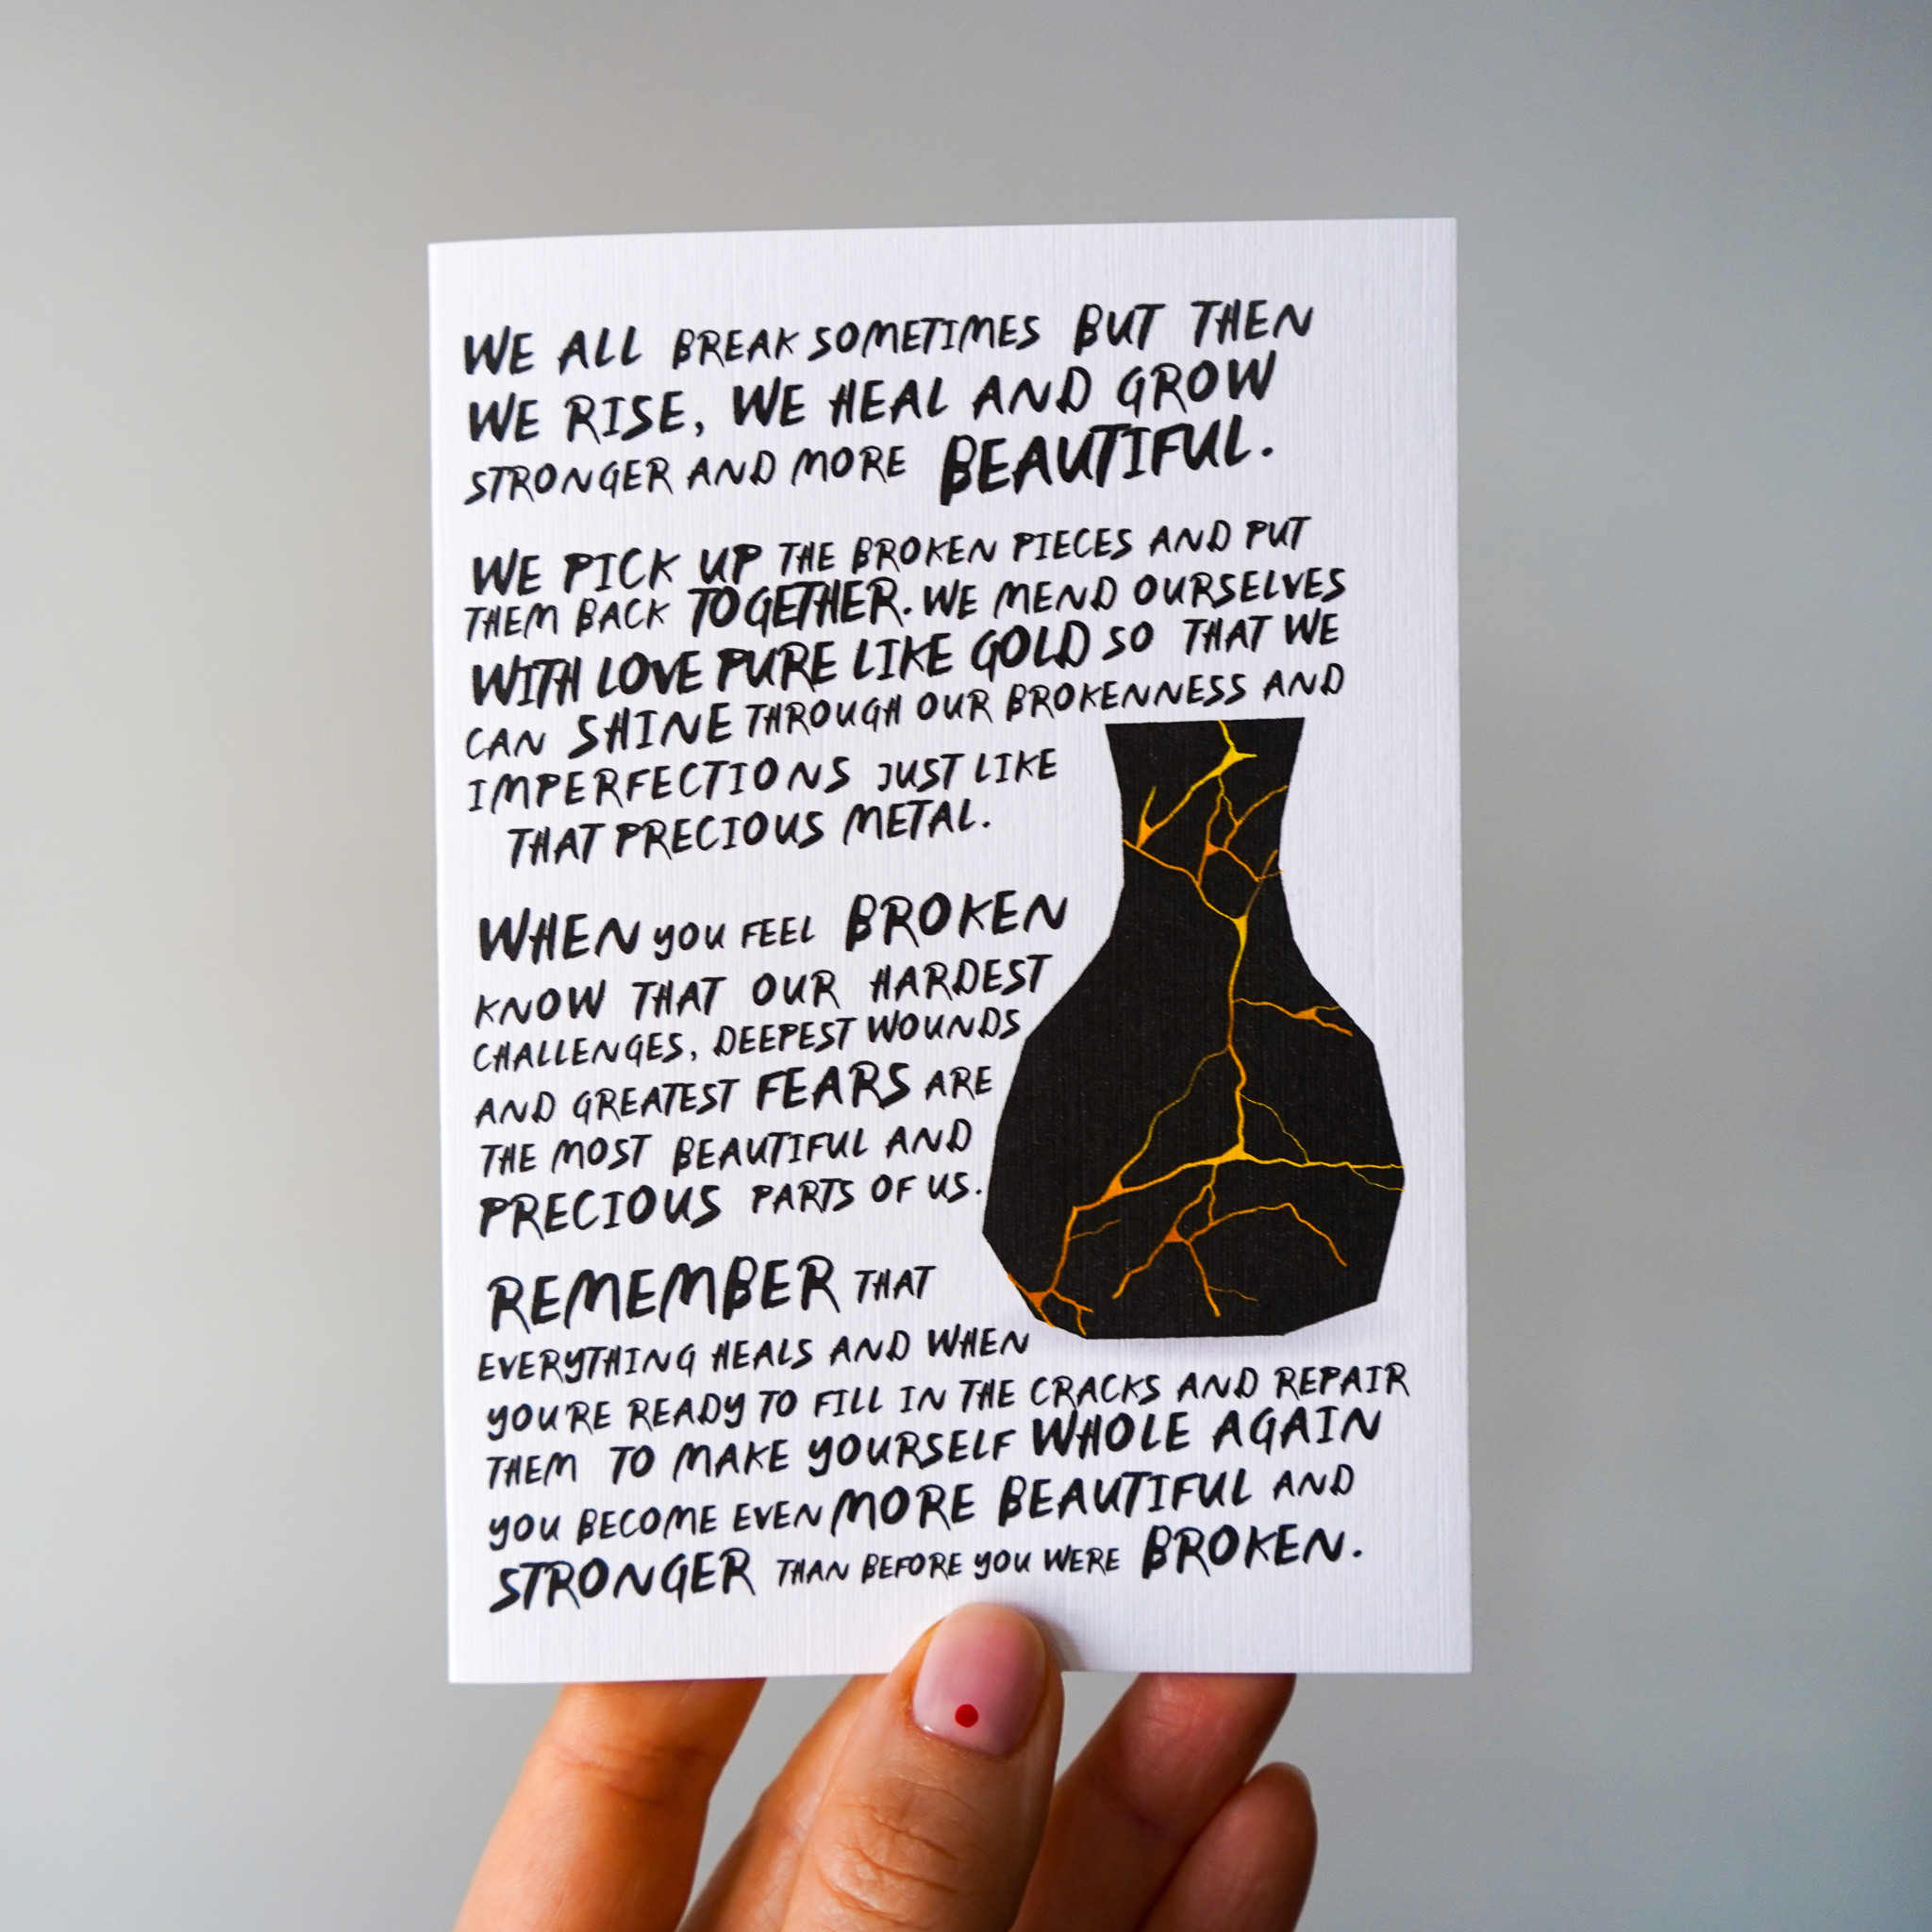 WE ALL BREAK SOMETIMES BUT THEN
WE RISE, WE HEAL AND GROW
STRONGER AND MORE BEAUTIFUL.
WE PICK UP THE BROKEN PIECES AND PUT
THEM BACK TOGETHER. WE MEND OURSELVES
WITH LOVE PURE LIKE GOLD SO THAT WE
CAN SHINE THROUGH OUR BROKENNESS AND
IMPERFECTIONS JUST LIKE
THAT PRECIOUS METAL.
WHEN YOU FEEL BROKEN
KNOW THAT OUR HARDEST
CHALLENGES, DEEPEST WOUNDS
AND GREATEST FEARS ARE
THE MOST BEAUTIFUL AND
PRECIOUS PARTS OF US.
REMEMBER THAT
EVERYTHING HEALS AND WHEN
YOU'RE READY TO FILL IN THE CRACKS AND REPAIR
THEM TO MAKE YOURSELF WHOLE AGAIN
YOU BECOME EVEN MORE BEAUTIFUL AND
STRONGER THAN BEFORE YOU WERE BROKEN.